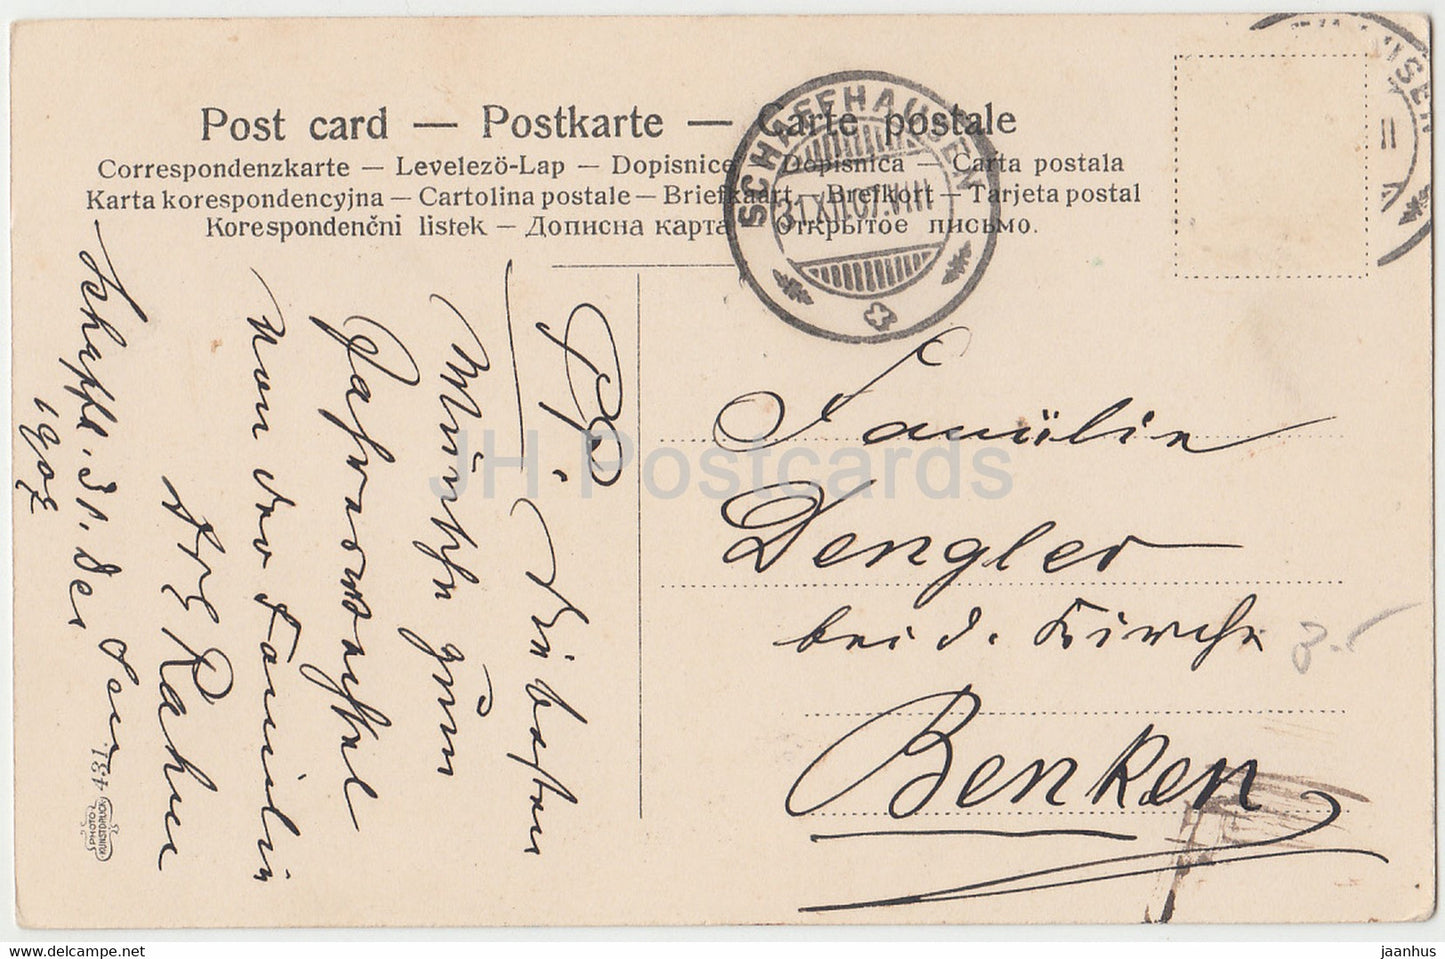 Post card — Postkarte — Carte postale
Correspondenzkarte — Levelező-Lap — Dopisnice — Dopisnica — Carta postala
Karta korespondencyjna — Cartolina postale — Briefkaart — Brefkort — Tarjeta postal
Korespondenční listek — Дописна карта — Открытое письмо.
SCHAFFHAUSEN
31.XII.07.VIII
Familie
Dengler
bei d. Kirche
Benken
PP.
Die besten
Wünsche zum
Jahreswechsel
von der Familie
Rahm
Schaffh. 31. Dez
1907
431
PHOTO
KUNSTDRUCK
JH Postcards
https://www.delcampe.net
jaanhus